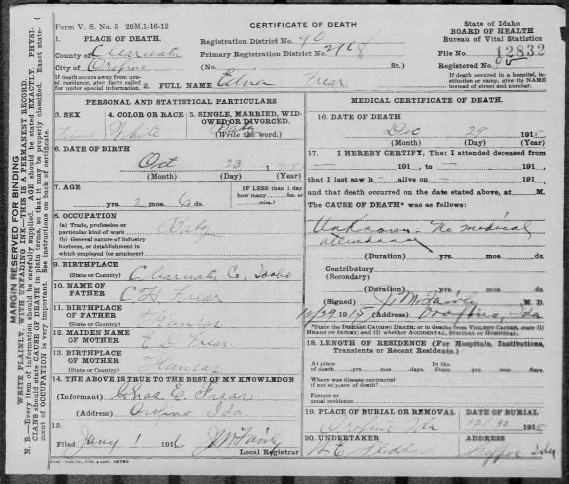 Form V. S. No. 5 20M.1-16-12
CERTIFICATE OF DEATH
State of Idaho
BOARD OF HEALTH
Bureau of Vital Statistics
1. PLACE OF DEATH.
County of Clearwater
City of Orofino
Registration District No. 90
Primary Registration District No. 2108
(No. St.)
File No. 12832
Registered No.
If death occurs away from usual residence, give facts called for under special information.
2. FULL NAME Edna Frear
If death occurred in a hospital, institution or camp, give its NAME instead of street and number.
MARGIN RESERVED FOR BINDING
WRITE PLAINLY, WITH UNFADING INK—THIS IS A PERMANENT RECORD.
N. B.—Every item of information should be carefully supplied. AGE should be stated EXACTLY. PHYSICIANS should state CAUSE OF DEATH in plain terms, so that it may be properly classified. Exact statement of OCCUPATION is very important. See instructions on back of certificate.
PERSONAL AND STATISTICAL PARTICULARS
3. SEX
4. COLOR OR RACE White
5. SINGLE, MARRIED, WIDOWED OR DIVORCED. Baby
(Write the word.)
6. DATE OF BIRTH
Oct 23 1
(Month) (Day) (Year)
7. AGE
yrs. 2 mos. 6 ds.
IF LESS than 1 day how many hrs. or min.?
8. OCCUPATION
(a) Trade, profession or particular kind of work Baby
(b) General nature of industry, business, or establishment in which employed (or employer)
9. BIRTHPLACE
(State or Country) Clearwater Co, Idaho
10. NAME OF FATHER C. H. Frear
11. BIRTHPLACE OF FATHER
(State or Country) Kansas
12. MAIDEN NAME OF MOTHER Frear
13. BIRTHPLACE OF MOTHER
(State or Country) Kansas
14. THE ABOVE IS TRUE TO THE BEST OF MY KNOWLEDGE
(Informant) Chas E. Frear
(Address) Orofino Ida
15.
Filed Jany 1 1916 J M Fairly
Local Registrar
MEDICAL CERTIFICATE OF DEATH.
16. DATE OF DEATH
Dec 29 1915
(Month) (Day) (Year)
17. I HEREBY CERTIFY, That I attended deceased from
191 , to 191 ,
that I last saw h alive on 191 ,
and that death occurred on the date stated above, at M.
The CAUSE OF DEATH* was as follows:
Unknown. No medical
attendance
(Duration) yrs. mos. ds.
Contributory
(Secondary)
(Duration) yrs. mos. ds.
(Signed) J M Fairly M. D.
12/29 1915 (Address) Orofino, Ida
*State the DISEASE CAUSING DEATH; or in deaths from VIOLENT CAUSES, state (1) MEANS OF INJURY; and (2) whether ACCIDENTAL, SUICIDAL or HOMICIDAL.
18. LENGTH OF RESIDENCE (For Hospitals, Institutions, Transients or Recent Residents.)
At place of death yrs. mos. days. In the State yrs. mos. days
Where was disease contracted
if not at place of death?
Former or usual residence
19. PLACE OF BURIAL OR REMOVAL
Orofino Ida
DATE OF BURIAL
12/30 1915
20. UNDERTAKER
ADDRESS